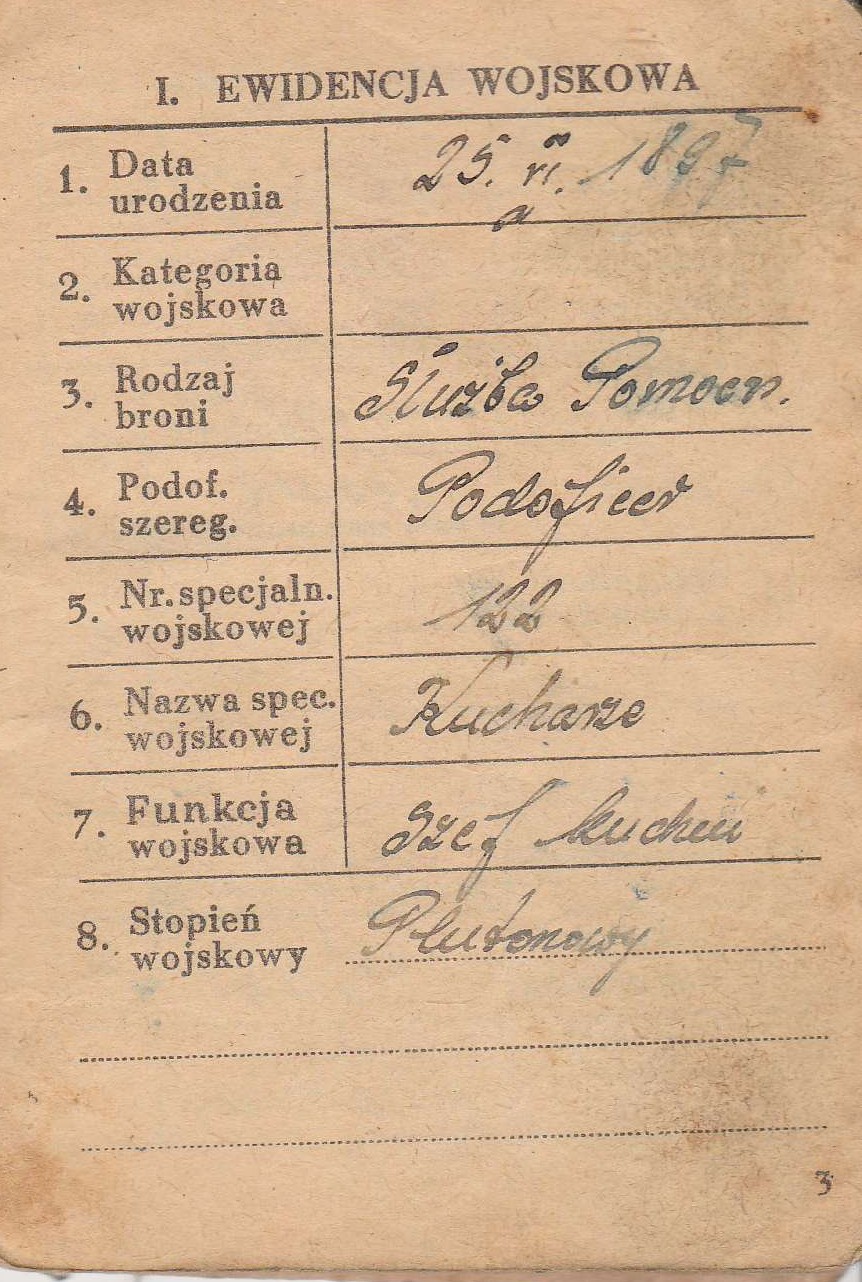 I. EWIDENCJA WOJSKOWA
1. Data urodzenia 25. VI. 1897
a
2. Kategoria wojskowa
3. Rodzaj broni Służba Pomocn.
4. Podof. szereg. Podoficer
5. Nr. specjaln. wojskowej 122
6. Nazwa spec. wojskowej Kucharze
7. Funkcja wojskowa Szef kuchni
8. Stopień wojskowy Plutonowy
3